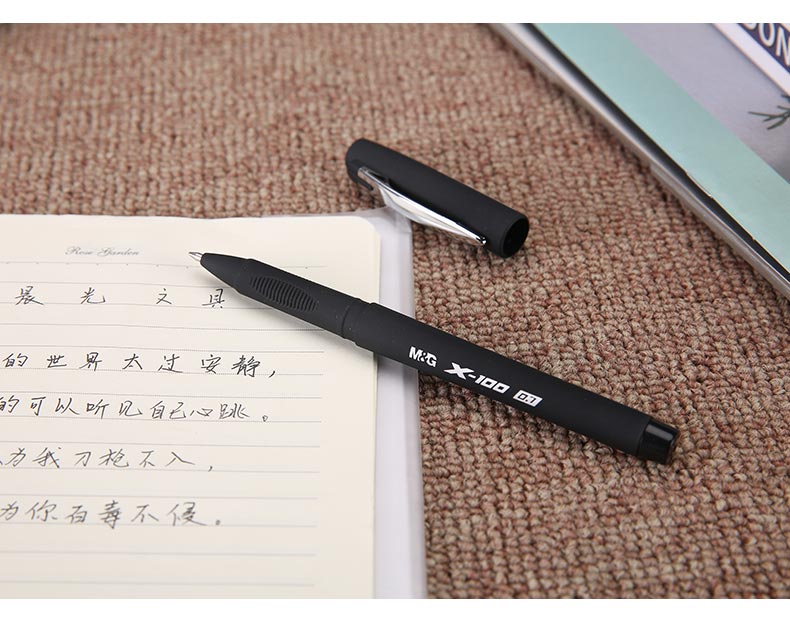 Rose Garden
晨光文具
的世界太过安静,
的可以听见自己心跳。
为我刀枪不入,
为你百毒不侵。
M&G X-100 0.7